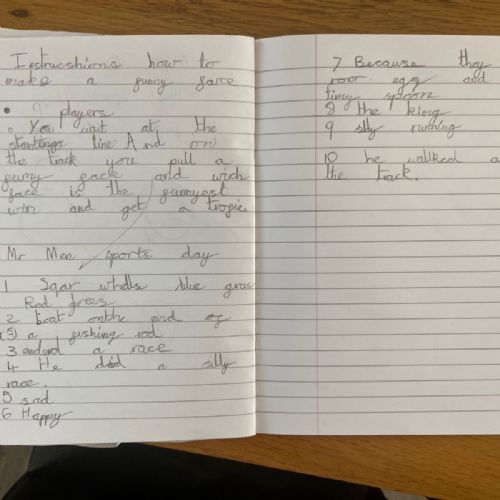 Instrucshions how to
make a gunny gace
9 players
You wait at the
line And on
the track you pull a
gunny gace and wich
gace is the gunnyest
win and get a trogie.
Mr Men sports day
1 Sqar wheels blue gras
Red trees
2 boat onthe end of
(5) a gushing rod
3 a race
4 He did a silly
race.
5 sad
6 Happy
7 Because they
egg and
tiny spoon
8 the king
9 running
10 he walked a
the track.